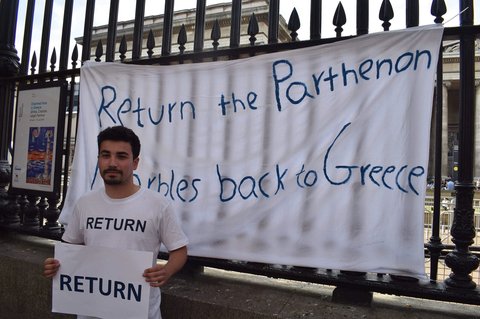 Return the Parthenon
Marbles back to Greece
RETURN
RETURN